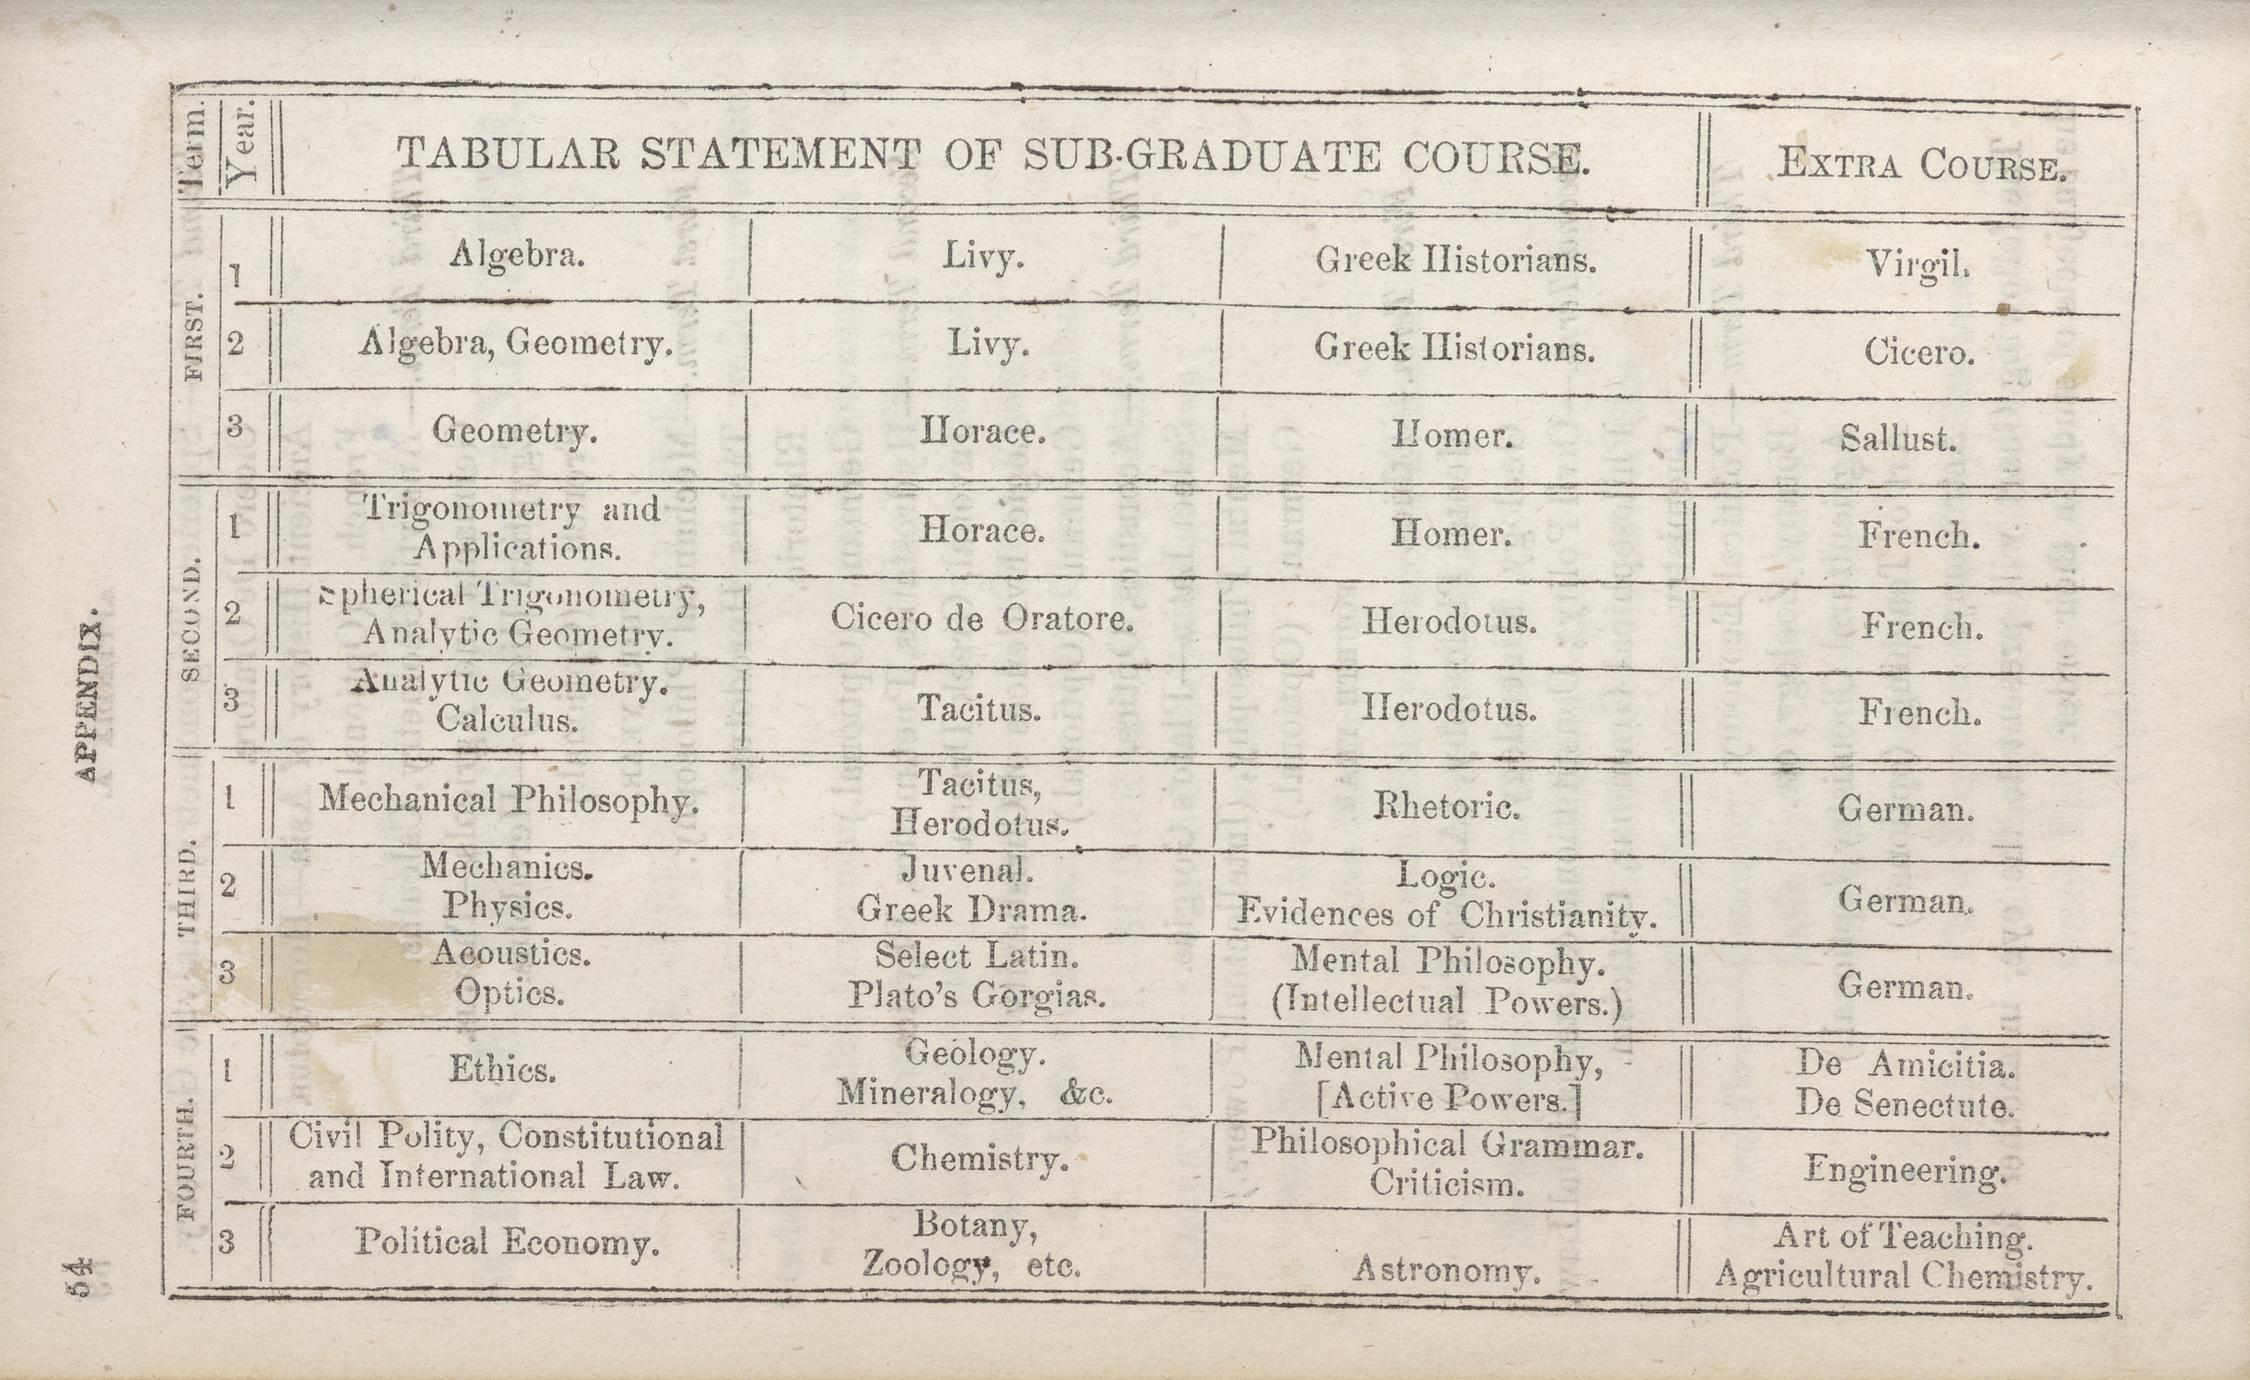 APPENDIX.
54
Term.
Year.
TABULAR STATEMENT OF SUB-GRADUATE COURSE.
EXTRA COURSE.
FIRST.
1
Algebra.
Livy.
Greek Historians.
Virgil.
2
Algebra, Geometry.
Livy.
Greek Historians.
Cicero.
3
Geometry.
Horace.
Homer.
Sallust.
SECOND.
1
Trigonometry and
Applications.
Horace.
Homer.
French.
2
Spherical Trigonometry,
Analytic Geometry.
Cicero de Oratore.
Herodotus.
French.
3
Analytic Geometry.
Calculus.
Tacitus.
Herodotus.
French.
THIRD.
1
Mechanical Philosophy.
Tacitus,
Herodotus.
Rhetoric.
German.
2
Mechanics.
Physics.
Juvenal.
Greek Drama.
Logic.
Evidences of Christianity.
German.
3
Acoustics.
Optics.
Select Latin.
Plato's Gorgias.
Mental Philosophy.
(Intellectual Powers.)
German.
FOURTH.
1
Ethics.
Geology.
Mineralogy, &c.
Mental Philosophy,
[Active Powers.]
De Amicitia.
De Senectute.
2
Civil Polity, Constitutional
and International Law.
Chemistry.
Philosophical Grammar.
Criticism.
Engineering.
3
Political Economy.
Botany,
Zoology, etc.
Astronomy.
Art of Teaching.
Agricultural Chemistry.